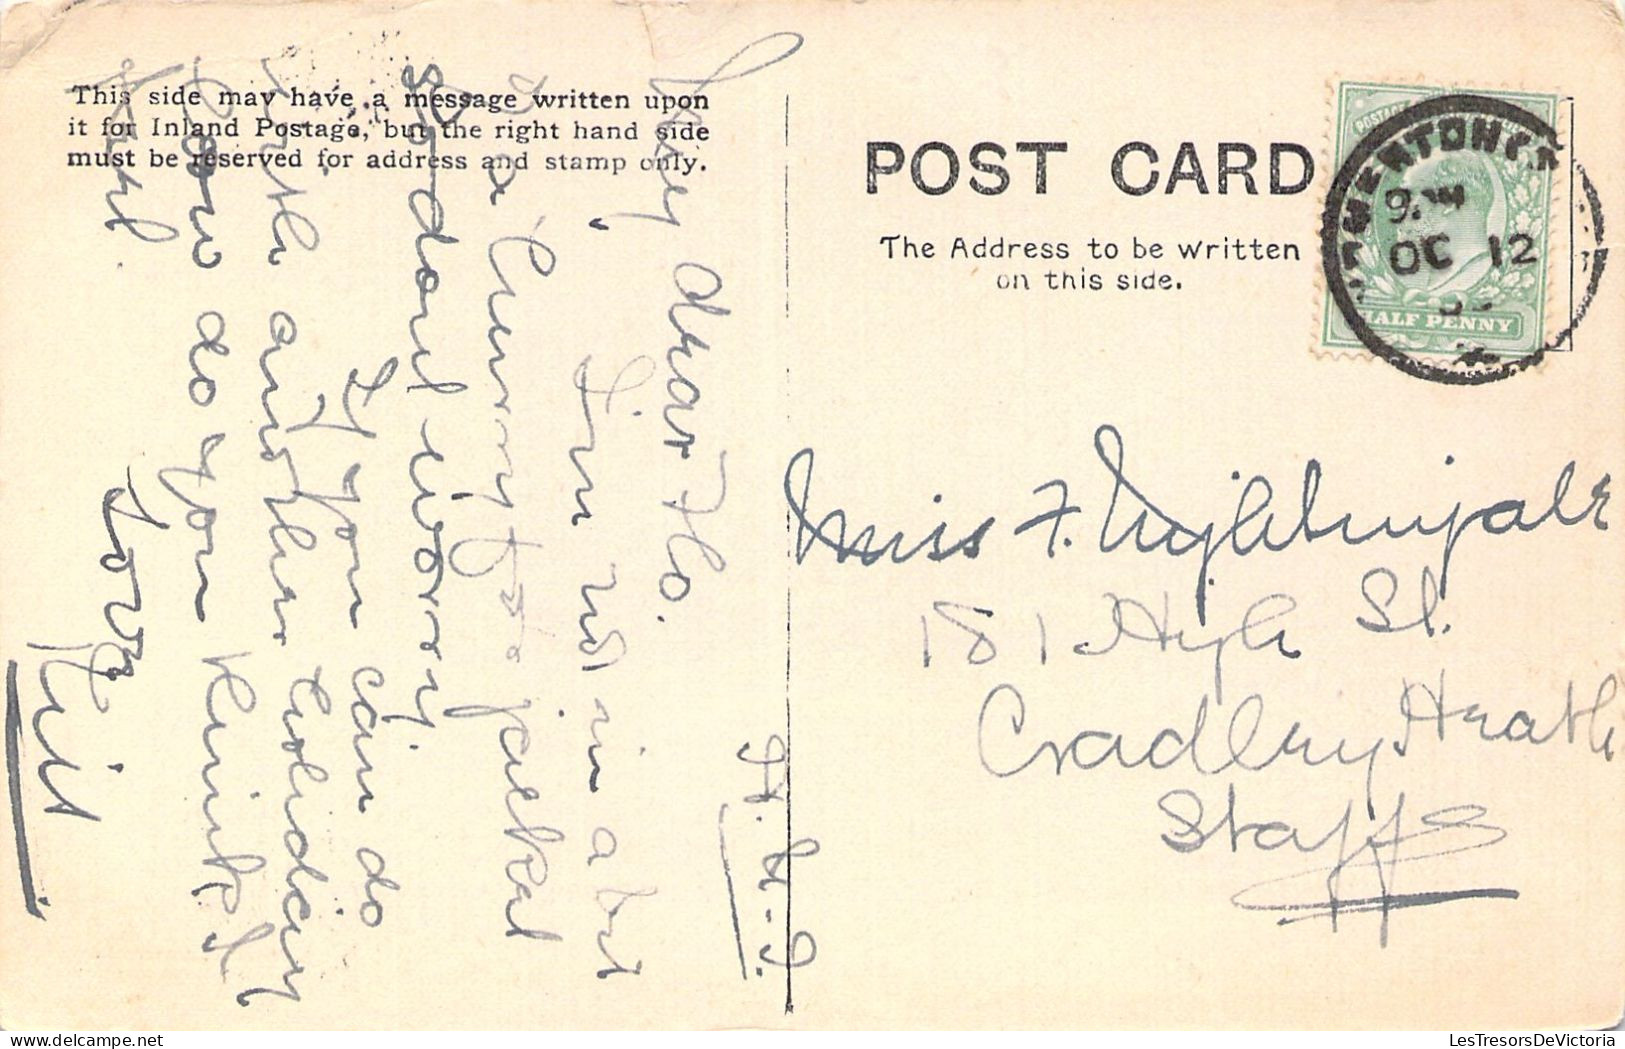 This side may have a message written upon
it for Inland Postage, but the right hand side
must be reserved for address and stamp only.
POST CARD
The Address to be written
on this side.
HALF PENNY
9
OC 12
Miss F. Nightingale
181 High St.
Cradley Heath
Staffs
H. G. I.
My dear Flo.
I'm not in a bit
of a hurry for jacket
So don't worry.
If you can do
with another holiday
how do you think I
feel.
Love
Kit
LesTresorsDeVictoria